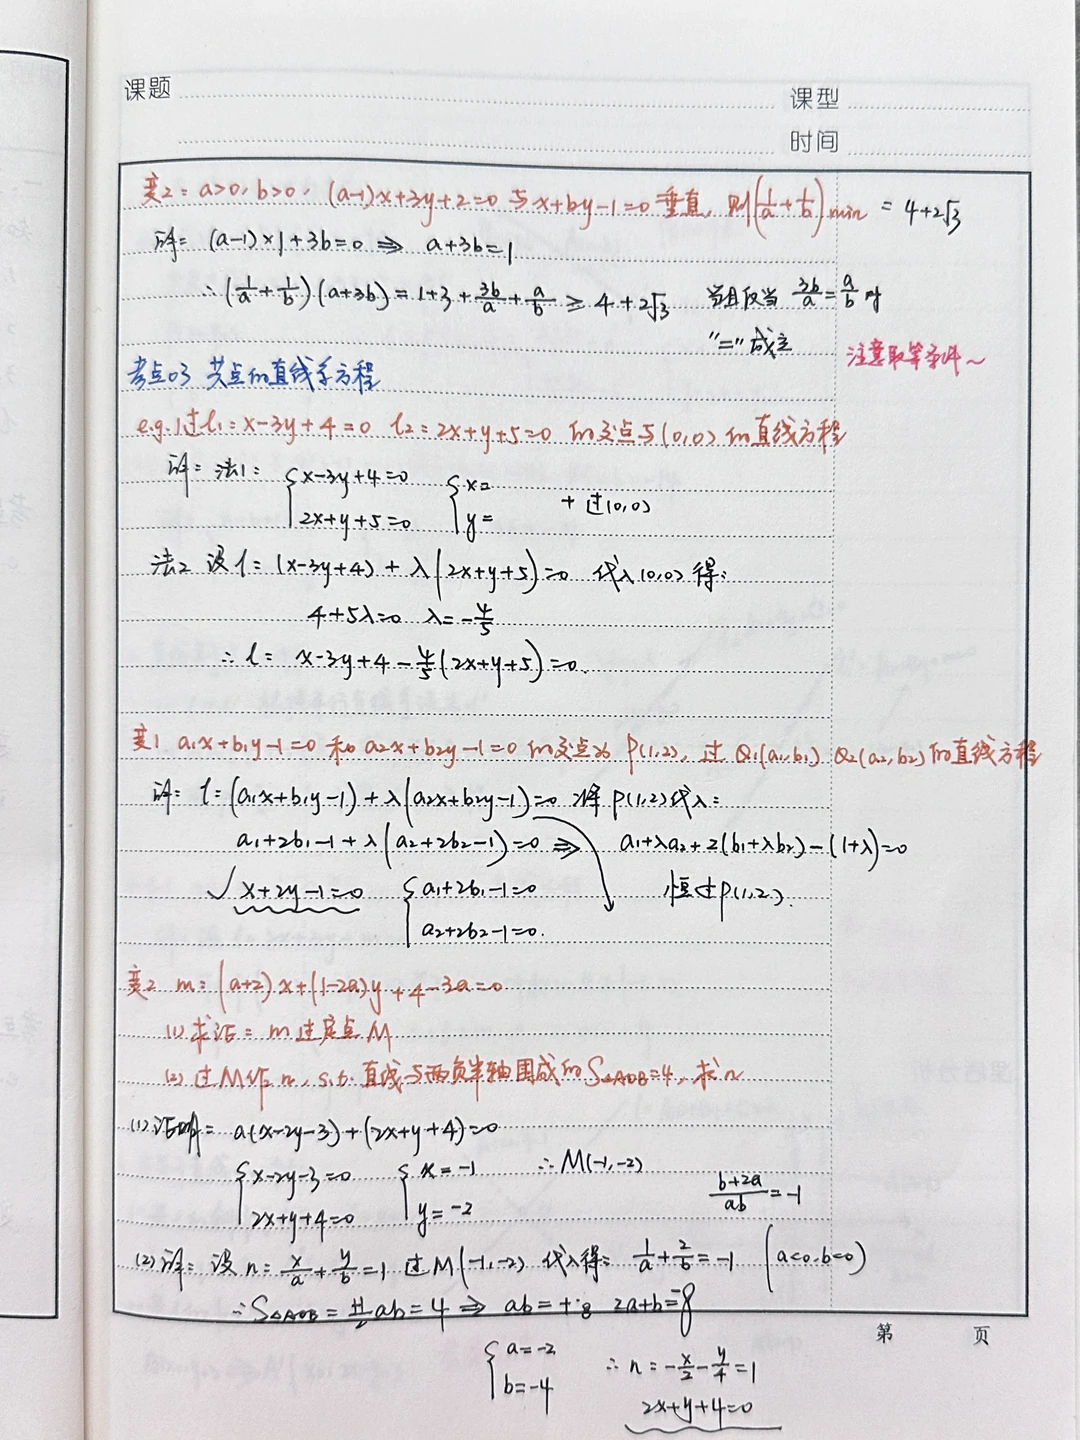 课题
课型
时间
变2: a>0, b>0, (a-1)x+3y+2=0与x+by-1=0垂直, 则(1/a+1/b)min = 4+2√3
解: (a-1)×1+3b=0 ⇒ a+3b=1
∴(1/a+1/b)(a+3b)=1+3+3b/a+a/b ≥ 4+2√3 当且仅当 3b/a=a/b 时
"="成立
注意取等条件~
考点03 共点的直线系方程
e.g.1过l₁:x-3y+4=0 l₂:2x+y+5=0 的交点与(0,0)的直线方程
解: 法1: {x-3y+4=0 {x=
2x+y+5=0 y= +过(0,0)
法2 设l:(x-3y+4)+λ(2x+y+5)=0 代入(0,0)得:
4+5λ=0 λ=-4/5
∴l: x-3y+4-4/5(2x+y+5)=0.
变1 a₁x+b₁y-1=0 和 a₂x+b₂y-1=0的交点为P(1,2), 过Q₁(a₁,b₁) Q₂(a₂,b₂)的直线方程
解: l:(a₁x+b₁y-1)+λ(a₂x+b₂y-1)=0 将P(1,2)代入:
a₁+2b₁-1+λ(a₂+2b₂-1)=0 ⇒ a₁+λa₂+2(b₁+λb₂)-(1+λ)=0
√ x+2y-1=0 {a₁+2b₁-1=0 恒过P(1,2).
a₂+2b₂-1=0.
变2 m:(a+2)x+(1-2a)y+4-3a=0
(1)求证:m过定点M
(2)过M作n, s.t.直线与两负半轴围成的S△AOB=4, 求n
(1)证明: a(x-2y-3)+(2x+y+4)=0
{x-2y-3=0 {x=-1 ∴M(-1,-2)
2x+y+4=0 y=-2
b+2a/ab=-1
(2)解: 设n:x/a+y/b=1 过M(-1,-2) 代入得: 1/a+2/b=-1 (a<0,b<0)
∴S△AOB=1/2ab=4 ⇒ ab=+8 2a+b=-8
{a=-2 ∴n:-x/2-y/4=1
b=-4 2x+y+4=0
第 页